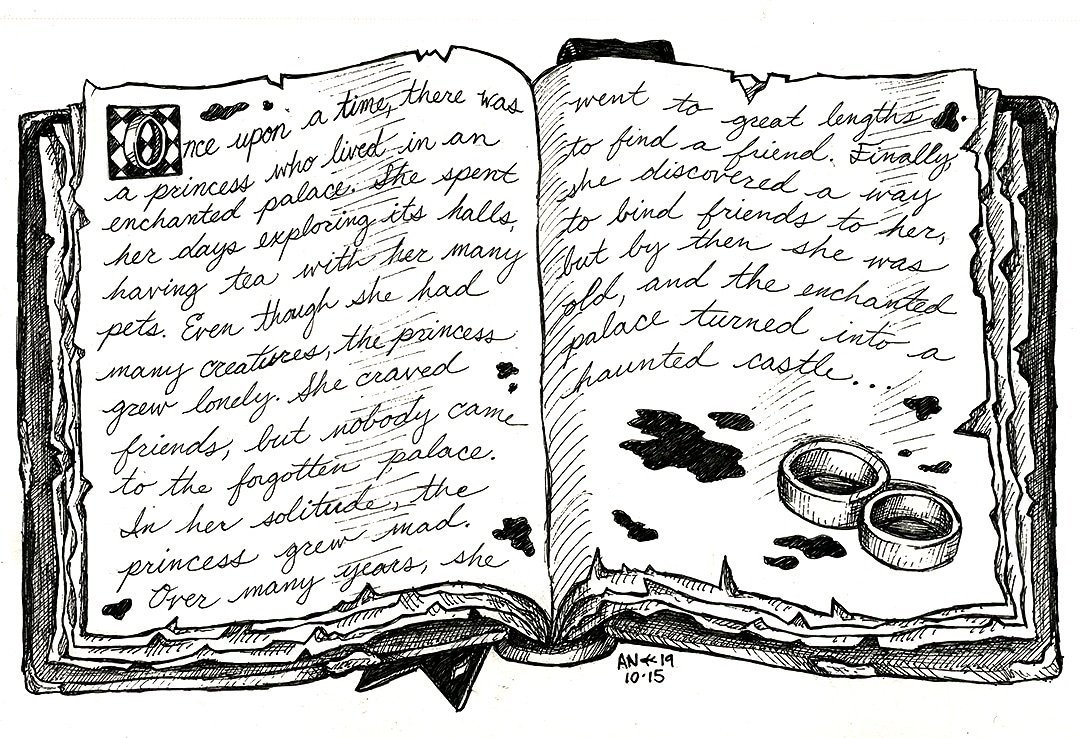 Once upon a time, there was
a princess who lived in an
enchanted palace. She spent
her days exploring its halls,
having tea with her many
pets. Even though she had
many creatures, the princess
grew lonely. She craved
friends, but nobody came
to the forgotten palace.
In her solitude, the
princess grew mad.
Over many years, she
went to great lengths
to find a friend. Finally,
she discovered a way
to bind friends to her,
but by then she was
old, and the enchanted
palace turned into a
haunted castle...
10.15